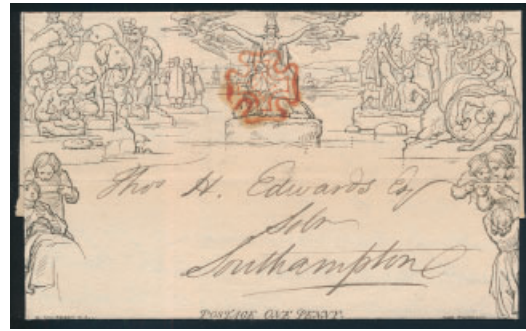 Thos H. Edwards Esq
Solr
Southampton
POSTAGE ONE PENNY.